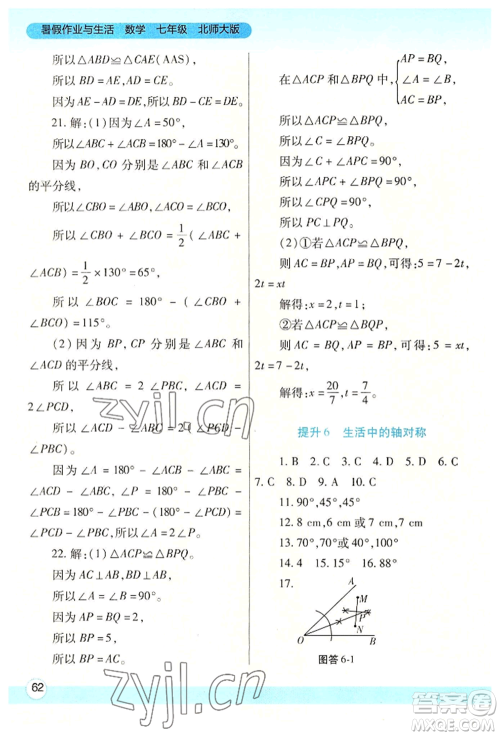 暑假作业与生活 数学 七年级 北师大版
所以△ABD≌△CAE(AAS)，
所以 BD=AE，AD=CE.
因为 AE-AD=DE，
所以 BD-CE=DE.
21. 解：(1)因为∠A=50°，
所以∠ABC+∠ACB=180°-∠A=130°.
因为 BO，CO 分别是∠ABC 与∠ACB
的平分线，
所以∠CBO=∠ABO，∠BCO=∠ACO，
所以∠CBO+∠BCO=1/2(∠ABC+
∠ACB)=1/2×130°=65°，
所以∠BOC=180°-(∠CBO+
∠BCO)=115°.
(2)因为 BP，CP 分别是∠ABC 与
∠ACD 的平分线，
所以∠ABC=2∠PBC，∠ACD=
2∠PCD，
所以∠ACB=180°-2∠PCD，
因为∠A=180°-∠ABC-∠ACB=
180°-2∠PBC-(180°-2∠PCD)=
2∠PCD-2∠PBC=2(∠PCD-
∠PBC)，∠P=180°-∠PBC-∠PCB=
180°-∠PBC-(180°-∠PCD)=
∠PCD-∠PBC，
所以∠A=2∠P.
22. 解：(1)△ACP≌△BPQ.
因为 AC⊥AB，BD⊥AB，
所以∠A=∠B=90°.
因为 AP=BQ=2，
所以 BP=5，
所以 BP=AC.
62
在△ACP 和△BPQ 中，{AP=BQ，
∠A=∠B，
AC=BP，
所以△ACP≌△BPQ，
所以∠C=∠BPQ.
因为∠C+∠APC=90°，
所以∠APC+∠BPQ=90°，
所以∠CPQ=90°，
所以 PC⊥PQ.
(2)①若△ACP≌△BPQ，
则 AC=BP，AP=BQ，可得：5=7-2t，
2t=xt
解得：x=2，t=1；
②若△ACP≌△BQP，
则 AC=BQ，AP=BP，可得：5=xt，
2t=7-2t
解得：x=20/7，t=7/4.
提升6 生活中的轴对称
1. B 2. C 3. D 4. A 5. C 6. C
7. C 8. D 9. A 10. C
11. 90°，45°，45°
12. 8 cm，6 cm，7 cm
13. 70°或 40°
14. 4 15. 16° 16. 88°
17.
A
M
P
N
O
B
图答 6-1
zyjl.cn
zyjl.cn